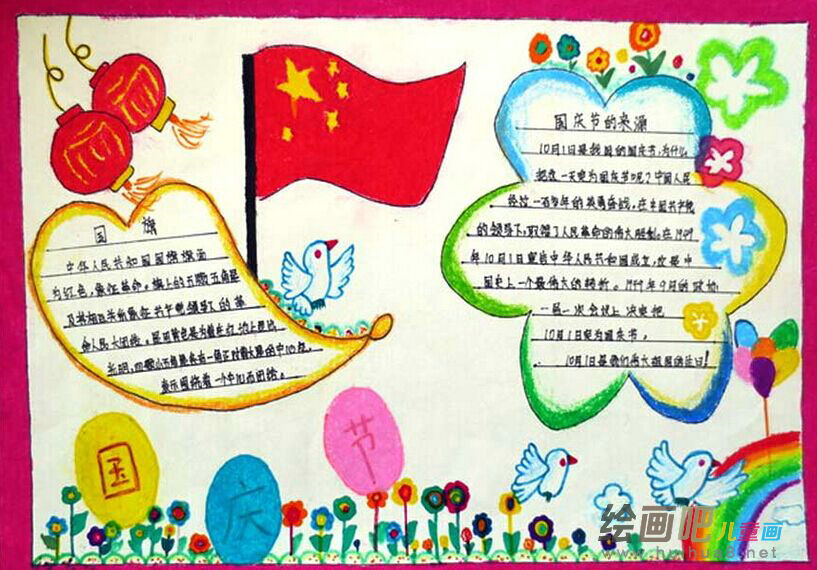 国旗
中华人民共和国国旗旗面
为红色，象征革命。旗上的五颗五角星
及其相互关系象征共产党领导下的革
命人民大团结。星用黄色是为着在红地上显出
光明，四颗小五角星各有一角正对着大星的中心点，
表示围绕着一个中心而团结。
国庆节的来源
10月1日是我国的国庆节，为什么
把这一天定为国庆节呢？中国人民
经过一百多年的英勇奋战，在中国共产党
的领导下，取得了人民革命的伟大胜利。在1949
年10月1日宣告中华人民共和国成立，这是中
国史上一个最伟大的转折。1949年9月的政协
一届一次会议上决定把
10月1日定为国庆节。
10月1日是我们伟大祖国的生日！
国
庆
节
绘画吧儿童画
www.huihua8.net